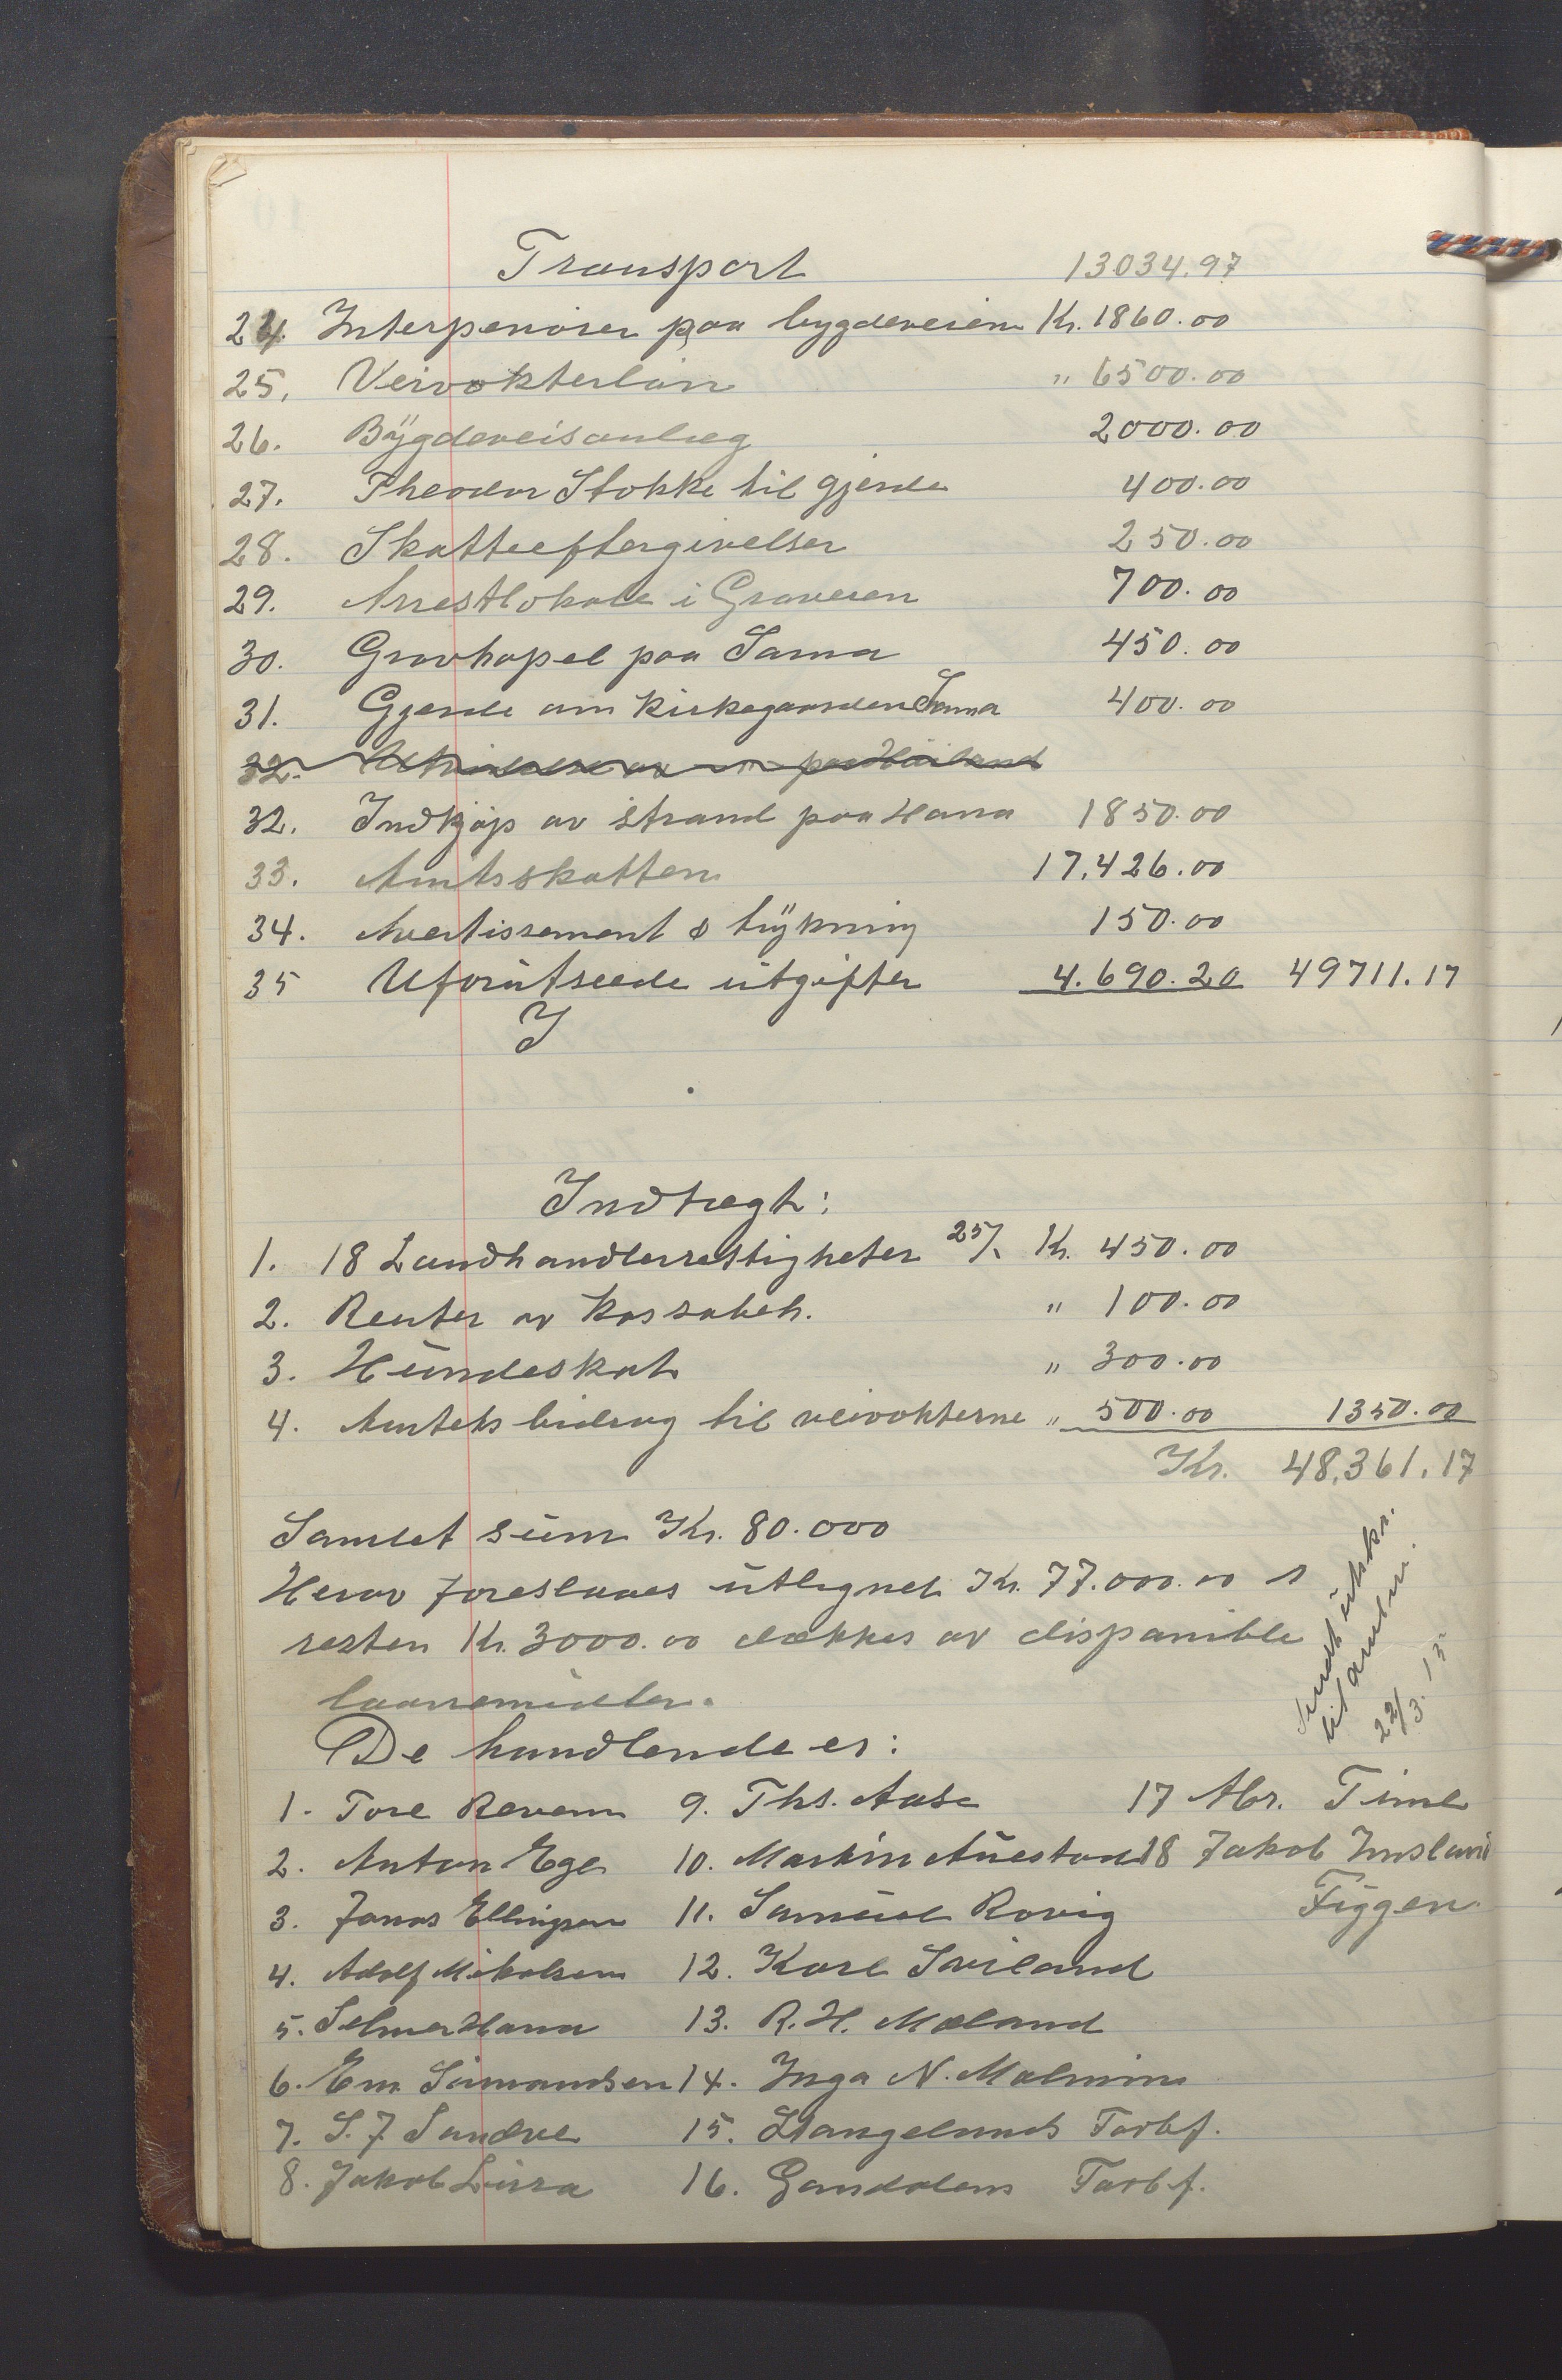 Transport 13034.97
24. Interpenörer paa bygdeveiene Kr. 1860.00
25. Veivokterlön " 6500.00
26. Bygdeveisanlæg 2000.00
27. Theodor Stokke til gjerde 400.00
28. Skatteeftergivelser 250.00
29. Arrestlokale i Graveren 700.00
30. Gravkapel paa Soma 450.00
31. Gjerde om kirkegaarden Soma 400.00
32. paa Höiland
32. Indkjöp av strand paa Hana 1850.00
33. Amtsskatten 17,426.00
34. Avertissement & trykning 150.00
35 Uforutseede utgifter 4.690.20 49711.17
Indtægt:
1. 18 Landhandlerrettigheter 25/- Kr. 450.00
2. Renter av kassabeh. " 100.00
3. Hundeskat " 300.00
4. Amtets bidrag til veivokterne " 500.00 1350.00
Kr. 48,361.17
Samlet sum Kr. 80.000
Herav foreslaaes utlignet Kr. 77.000.00 &
resten Kr. 3000.00 dækkes av disponible
laanemidler.
Sendt utskr.
til amtm.
22/3. 15
De handlende er:
1. Tore Revem 9. Ths. Aase 17 Abr. Time
2. Anton Ege 10. Martin Auestad 18 Jakob Imsland
3. Jonas Ellingsen 11. Samuel Rovig Figgen
4. Adolf Mikalsen 12. Karl Sviland
5. Selmer Hana 13. R. H. Mæland
6. Em. Simonsen 14. Inga N. Malmin
7. S. J. Sandve 15. Stangelands Forbf.
8. Jakob Lura 16. Gandalens Forbf.